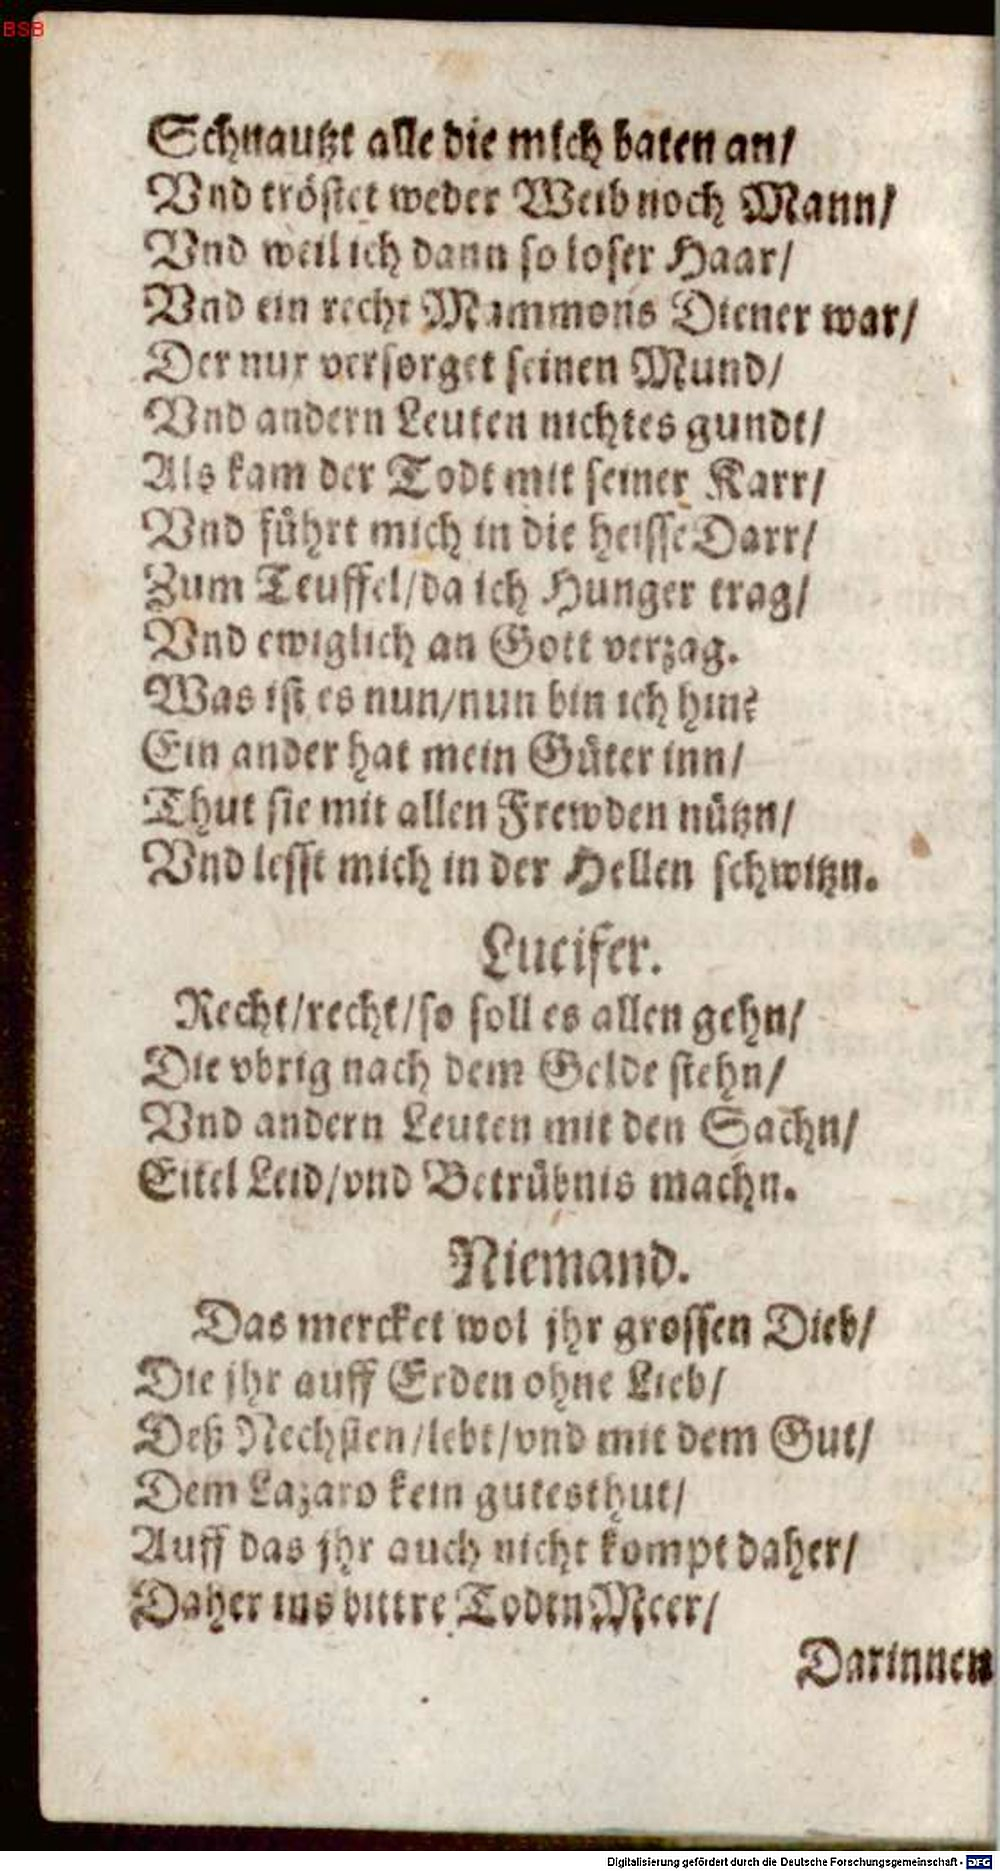 BSB
Schnautzt alle die mich baten an/
Vnd tröstet weder Weib noch Mann/
Vnd weil ich dann so loser Haar/
Vnd ein recht Mammons Diener war/
Der nur versorget seinen Mund/
Vnd andern Leuten nichtes gundt/
Als kam der Todt mit seiner Karr/
Vnd führt mich in die heisse Darr/
Zum Teuffel/da ich Hunger trag/
Vnd ewiglich an Gott verzag.
Was ist es nun/nun bin ich hin?
Ein ander hat mein Güter inn/
Thut sie mit allen Frewden nützn/
Vnd lesst mich in der Hellen schwitzn.
Lucifer.
Recht/recht/so soll es allen gehn/
Die vbrig nach dem Gelde stehn/
Vnd andern Leuten mit den Sachn/
Eitel Leid/vnd Betrübnis machn.
Niemand.
Das mercket wol jhr grossen Dieb/
Die jhr auff Erden ohne Lieb/
Deß Nechsten/lebt/vnd mit dem Gut/
Dem Lazaro kein gutesthut/
Auff das jhr auch nicht kompt daher/
Daher ins bittre Todtn Meer/
Darinnen
Digitalisierung gefördert durch die Deutsche Forschungsgemeinschaft - DFG